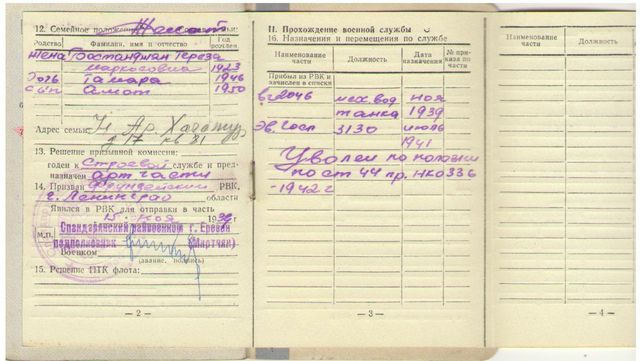 12. Семейное положение Женат
Родство
Фамилия, имя и отчество
Год рожден.
жена Тереза
Маркосовна 1923
дочь Тамара 1946
сын 1950
Адрес семьи:
д 17 кв 81
13. Решение призывной комиссии:
годен к строевой службе и пред-
назначен арт части
14. Призван Фрунзенским РВК,
г. Ленинград области
Явился в РВК для отправки в часть
15 ноя 19 г.
м.п. Спандарянский райвоенком г. Ереван
подполковник (Мкртчян)
Военком
(звание, подпись)
15. Решение ПТК флота:
— 2 —
II. Прохождение военной службы
16. Назначения и перемещения по службе
Наименование части
Должность
Дата назначения
№ приказа по части
Прибыл из РВК и
зачислен в списки
2046 мех. вод ноя
танка 1939
Эв. Госп 3130 июль
1941
Уволен по
по ст 44 пр. НКО 336
-1942 г
— 3 —
Наименование части
Должность
— 4 —